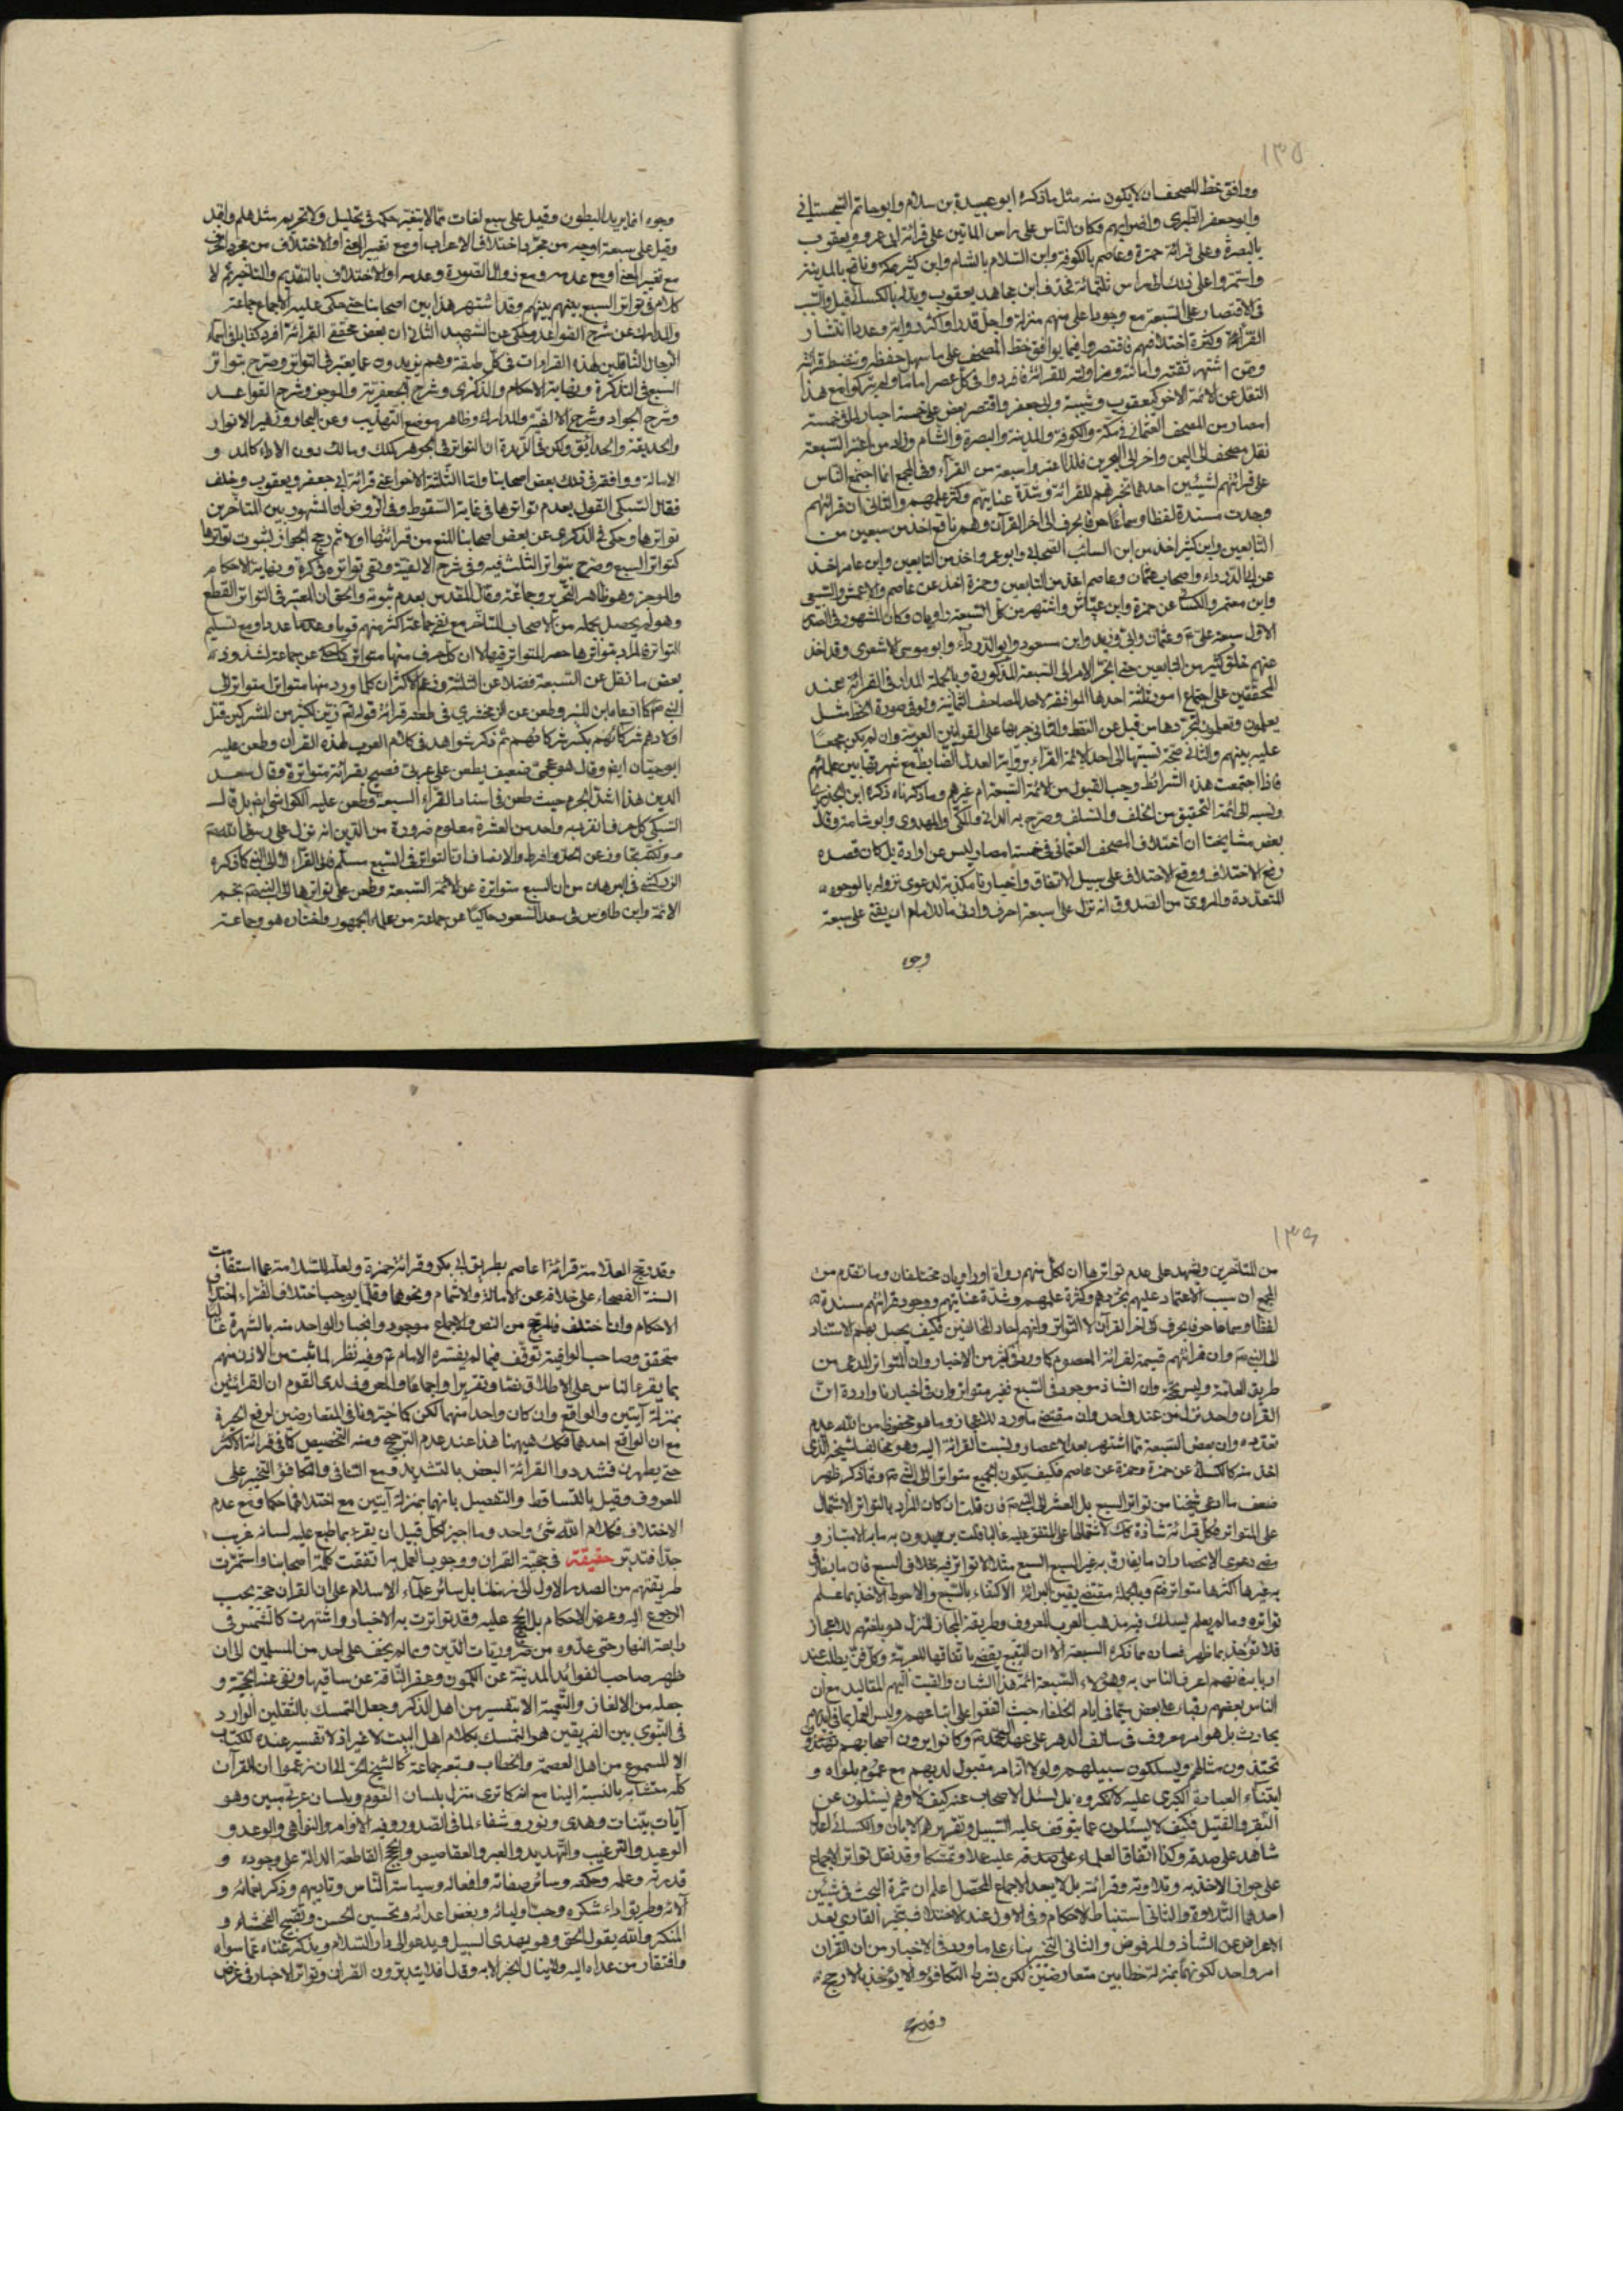 ١٣٥
ووافق خط المصحف ان لا يكون منه مثل ما ذكره ابو عبيدة بن سلام وابو حاتم السجستاني
وابو جعفر الطبرى واضرابهم وكان الناس على راس الماتين على قرائة ابى عمرو ويعقوب
بالبصرة وعلى قرائة حمزة وعاصم بالكوفة وابن السلام بالشام وابن كثير بمكة ونافع بالمدينة
واستمروا على ذلك الى راس ثلثمائة فحذف ابن مجاهد يعقوب وبدله بالكسائى قيل والسبب
فى الاقتصار على السبعة مع وجود اعلى منهم منزلة واجل قدرا واكثر رواية وعددا انتشار
القرائة وكثرة اختلافهم فاقتصروا فيما يوافق خط المصحف على ما سهل حفظه وتنضبط قرائته
ومن اشتهر ثقته وامانته ومزاولته للقرائة فافردوا فى كل عصر اماما ولم يتركوا مع هذا
النقل عن الائمة الاخر كيعقوب وشيبة وابى جعفر واقتصر بعض على خمسة اختيارا لخمسة
امصار من المصحف العثمانى فى مكة والكوفة والمدينة والبصرة والشام وزاد من اعتبر السبعة
نقل مصحف الى اليمن واخر الى البحرين فلذا اعتبروا سبعة من القرآء وفى المجمع انما اجتمع الناس
على قرائتهم لشيئين احدهما تجردهم للقرائة وشدة عنايتهم وكثر علمهم والثانى ان قرائتهم
وجدت مسندة لفظا وسماعا حرفا بحرف الى اخر القرآن وهم نافع اخذ من سبعين من
التابعين وابن كثير اخذ من ابن السائب الصحابى وابو عمرو اخذ من التابعين وابن عامر اخذ
عن ابى الدرداء واصحاب عثمان وعاصم اخذ من التابعين وحمزة اخذ عن عاصم والاعمش والسبيعى
وابن معتمر والكسائى عن حمزة وابن عياش واشتهر من كل السبعة راويان وكان المشهور فى الصدر
الاول سبعة على ع وعثمان وابى وزيد وابن مسعود وابو الدرداء وابو موسى الاشعرى وقد اخذ
عنهم خلق كثير من التابعين حتى انجر الامر الى السبعة المذكورة وبالجملة المدار فى القرائة عند
المحققين على اجتماع امور ثلثة احدها الموافقة لاحد المصاحف الثمانية ولو فى صورة الخط مثل
يعملون وتعملون لتجردها من قبل عن النقط والثانى جريها على القوانين العربية وان لم يكن مجمعا
عليه بينهم والثالث صحة نسبتها الى احد الائمة القراء برواية العدل الضابط مع شهرتها بين علمائهم
فاذا اجتمعت هذه الشرائط وجب القبول من الائمة السبعة ام غيرهم وما ذكرناه ذكره ابن الجزرى
ونسبه الى ائمة التحقيق من الخلف والسلف وصرح به الدانى والمكى والمهدوى وابو شامة وقال
بعض مشايخنا ان اختلاف المصحف العثمانى فى خمسة امصار ليس عن ارادة بل كان قصده
رفع الاختلاف ووقع الاختلاف على سبيل الاتفاق واخبارنا مكذبة لدعوى نزوله بالوجوه
المتعددة والمروى من الصدوق انه نزل على سبعة احرف وادنى ما للامام ان يفتى على سبعة
وجوه
وجوه انما يريد البطون وقيل على سبع لغات مما لا يتغير حكمه فى تحليل ولا تحريم مثل هلم واقبل
وقيل على سبعة اوجه من مجرد اختلاف الاعراب او مع تغيير المعنى او الاختلاف من حروف الكلمة
مع تغير المعنى او مع عدمه ومع زوال الصورة وعدمه او الاختلاف بالتقديم والتاخير ثم لا
كلام فى تواتر السبع بينهم بينهم وقد اشتهر هذا بين اصحابنا حتى حكى عليه الاجماع جماعة
والمدارك عن شرح القواعد وحكى عن الشهيد الثانى ان بعض محققى القرائة افرد كتابا فى اسماء
الرجال الناقلين لهذه القراءات فى كل طبقة وهم يزيدون عما يعتبر فى التواتر وصرح بتواتر
السبع فى التذكرة ونهاية الاحكام والذكرى وشرح الجعفرية والموجز وشرح القواعد
وشرح الجواد وشرح الالفية والمدارك وظاهر موضع التهذيب وعن البحار وزهر الانوار
والحديقة والحدائق ولكن فى الزبدة ان التواتر فى الجوهر كملك ومالك دون الاداء كالمد و
الامالة ووافقه فى ذلك بعض اصحابنا واما الثلثة الاخر اعنى قرائة ابى جعفر ويعقوب وخلف
فقال السبكى القول بعدم تواترها فى غاية السقوط وفى الروض ان المشهور بين المتاخرين
تواترها وحكى فى الذكرى عن بعض اصحابنا المنع من قرائتها اولا ثم رجح الجواز لثبوت تواترها
كتواتر السبع وصرح بتواتر الثلث فيه وفى شرح الالفية ونفى تواتره فى كرة ونهاية الاحكام
والموجز وهو ظاهر التحرير وجماعة وقال المقدس بعدم ثبوته والحق ان المعتبر فى التواتر القطع
وهو لم يحصل بحمله من الاصحاب المتاخر مع نفى جماعة اكثر منهم قوبا وعددا ومع تسليم
التواتر فالمراد بتواترها حصر المتواتر فيها لا ان كل حرف منها متواتر عن جماعة لشذوذ
بعض ما نقل عن السبعة فضلا عن الثلثة وزعم الاكثر ان كلما ورد منها متواترا متواتر الى
النبى ص كما ادعاه ابن المنير وطعن عن الزمخشرى فى طعنه قرائة قوله تع زين لكثير من المشركين قتل
اولادهم شركائهم بكسر شركائهم ثم ذكر شواهد فى كلام العرب لهذه القرآن وطعن عليه
ابو حيان ايضا وقال هو عجمى ضعيف يطعن على عربى فصيح بقرائة متواترة وقال سعد
الدين هذا اشد الجرم حيث طعن فى اسناد القراء السبعة وطعن عليه الكواشى ايضا بل قال
السبكى كل حرف انفرد به واحد من العشرة معلوم ضرورة من الدين انه نزل على رسول الله ص
ولكنه تجاوز عن الحد وافرط والانصاف ان التواتر فى السبع مسلم الى القرآء لا الى النبى كما ذكره
الزركشى فى البرهان من ان السبع متواترة عن الائمة السبعة وطعن على تواترها الى النبى ص نجم
الائمة وابن طاوس فى سعد السعود حاكيا عن جماعة من علماء الجمهور واختاره هو وجماعة
١٣٦
من المتاخرين ويشهد على عدم تواترها ان لكل منهم رواة او راويان مختلفان وما تقدم من
المجمع ان سبب الاعتماد عليهم تجردهم وكثرة علمهم وشدة عنايتهم ووجود قرائتهم مسندة
لفظا وسماعا حرفا بحرف الى اخر القرآن لا التواتر وانهم احاد المخالفين فكيف يحصل بهم الاستناد
الى النبى ص وان قرائتهم قسيمة لقرائة المعصوم كما ورد فى كثير من الاخبار وان التواتر المدعى من
طريق العامة وليس بحجة وان الشاذ موجود فى السبع فغير متواتر وان فى اخبارنا واردة ان
القران واحد نزل من عند واحد وان مقتضى ما ورد للاعجاز وما هو محفوظ من الله عدم
تعدده وان بعض السبعة مما اشتهر بعد الاعصار ونسبت القرائة اليه وهو مخالف لشيخه الذى
اخذ منه كالكسائى عن حمزة وحمزة عن عاصم فكيف يكون الجميع متواترا الى النبى ص ومما ذكر ظهر
ضعف ما ادعى شيخنا من تواتر السبع بل العشر الى النبى ص فان قلت ان كان المراد بالتواتر الاشتمال
على المتواتر فكل قرائة شاذة كذلك لاشتمالها على المتفق عليه غالبا قلت يريدون به ما به الامتياز و
معنى دعوى الانحصار ان ما يفارق به غير السبع السبع مثلا لا تواتر فيه بخلاف السبع فان ما يفارق
به غيرها اكثرها متواتر فتم وبالجملة مقتضى يقين البرائة الاكتفاء بالسبع والاحوط الاخذ بما علم
تواتره وما لم يعلم ليسلك فيه مذهب العرب المعروف وطريقة المجاز المنزل هو بلغتهم للاعجاز
فلا تؤخذ بما ظهر فساده مما ذكره السبعة الا ان التتبع يقضى باتفاقها للعربية وكل فن يطلب عند
اربابه فانهم اعرف الناس به وهؤلاء السبعة ائمة هذا الشان والقيت اليهم المقاليد مع ان
الناس بعضهم رقباء على بعض سيما فى ايام الخلفاء حيث اتفقوا على اتباعهم وليس العمل بما فى ايديهم
بحادث بل هو امر معروف فى سالف الدهر على عهد الائمة ع وكانوا يرون اصحابهم يقتدون
تحتذون مثالهم ويسلكون سبيلهم ولولا انه امر مقبول لديهم مع عموم بلواه و
ابتناء العبادة الكبرى عليه لانكروه بل لسئل الاصحاب عنه كيف لا وهم يسئلون عن
النقير والفتيل فكيف لا يسئلون عما يتوقف عليه السبيل وتقريرهم لابان والكسائى اعدل
شاهد على صدقه وكذا اتفاق العلماء على صدقه عليه علما وتمسكا وقد نقل تواتر الاجماع
على جواز الاخذ به وتلاوته وقرائته بل لا يبعد الاجماع المحصل اعلم ان ثمرة البحث فى شيئين
احدهما التلاوة والثانى استنباط الاحكام وفى الاول عند الاختلاف يتخير القارى بعد
الاعراض عن الشاذ والمرفوض والثانى التخيير بناء على ما ورد فى الاخبار من ان القران
امر واحد لكونهما بمنزلة خطابين متعارضين لكن بشرط التكافؤ والا يؤخذ بالارجح
وقد رجح
وقد رجح العلامة قرائة عاصم بطريق ابى بكر وقرائة حمزة ولعله للسلامة عما استقامت
السنة الفصحاء على خلافه عن الامالة والاشمام ونحوها وقلما يوجب اختلاف القراء اختلاف
الاحكام وان اختلف فالمرجح من النص والاجماع موجود وانجبار الواحد منه بالشهرة غالبا
متحقق وصاحب الوافية توقف فيما لم يفسره الامام ع وفيه نظر لما ثبت من الاذن منهم
بما يقرء الناس على الاطلاق نصا وتقريرا واجماعا والمعروف لدى القوم ان القرائتين
بمنزلة آيتين والواقع وان كان واحدا منهما لكن كما خيرونا فى المتعارضين لرفع الحيرة
مع ان الواقع احدهما فكذلك هيهنا هذا عند عدم الترجيح ومنه التخصيص كما فى قرائة الاكثر
حتى يطهرن فشددوا القرائة البعض بالتشديد ومع التنافى والتكافؤ التخيير على
المعروف وقيل بالتساقط والتفصيل بانهما بمنزلة آيتين مع اختلافهما حكما ومع عدم
الاختلاف فكلام الله شئ واحد وما اجيز لكل قبيل ان يقرء بما طبع عليه لسانه غريب
جدا فتدبر حقيقة فى حجية القران ووجوب العمل به اتفقت كلمة اصحابنا واستمرت
طريقتهم من الصدر الاول الى زماننا بل سائر علمآء الاسلام على ان القران حجة يجب
الرجوع اليه وعرض الاحكام بل الحجج عليه وقد تواترت به الاخبار واشتهرت كالشمس فى
رابعة النهار حتى عدوه من ضروريات الدين ومما لم يخف على احد من المسلمين الى ان
ظهر صاحب الفوائد المدنية عن الكمون وعقر الناقة عن ساقيها ونفى عنه الحجية و
جعله من الالغاز والتعمية الا بتفسير من اهل الذكر وجعل التمسك بالثقلين الوارد
فى النبوى بين الفريقين هو التمسك بكلام اهل البيت لا غير اذ لا تفسير عنده للكتاب
الا المسموع من اهل العصمة والخطاب وتبعه جماعة كالشيخ الحر الى ان زعموا ان القرآن
كله متشابه بالنسبة الينا مع انه كما ترى منزل بلسان القوم وبلسان عربى مبين وهو
آيات بينات وهدى ونور وشفاء لما فى الصدور وفيه الاوامر والنواهى والوعد و
الوعيد والترغيب والتهديد والعبر والقاصيص والحجج القاطعة الدالة على وجوده و
قدرته وعلمه وحكمته وسائر صفاته وافعاله وسياسة الناس وتاديبهم وذكر نعمائه و
آلائه وطريق اداء شكره وحب اوليائه وبغض اعدائه وتحسين الحسن وتقبيح الفحشاء و
المنكر والله يقول الحق وهو يهدى السبيل ويدعو الى دار السلام ويذكر غناه عما سواه
وافتقار من عداه اليه ولا ينال الخير الا به وقال افلا يتدبرون القران وتواتر الاخبار فى عرض